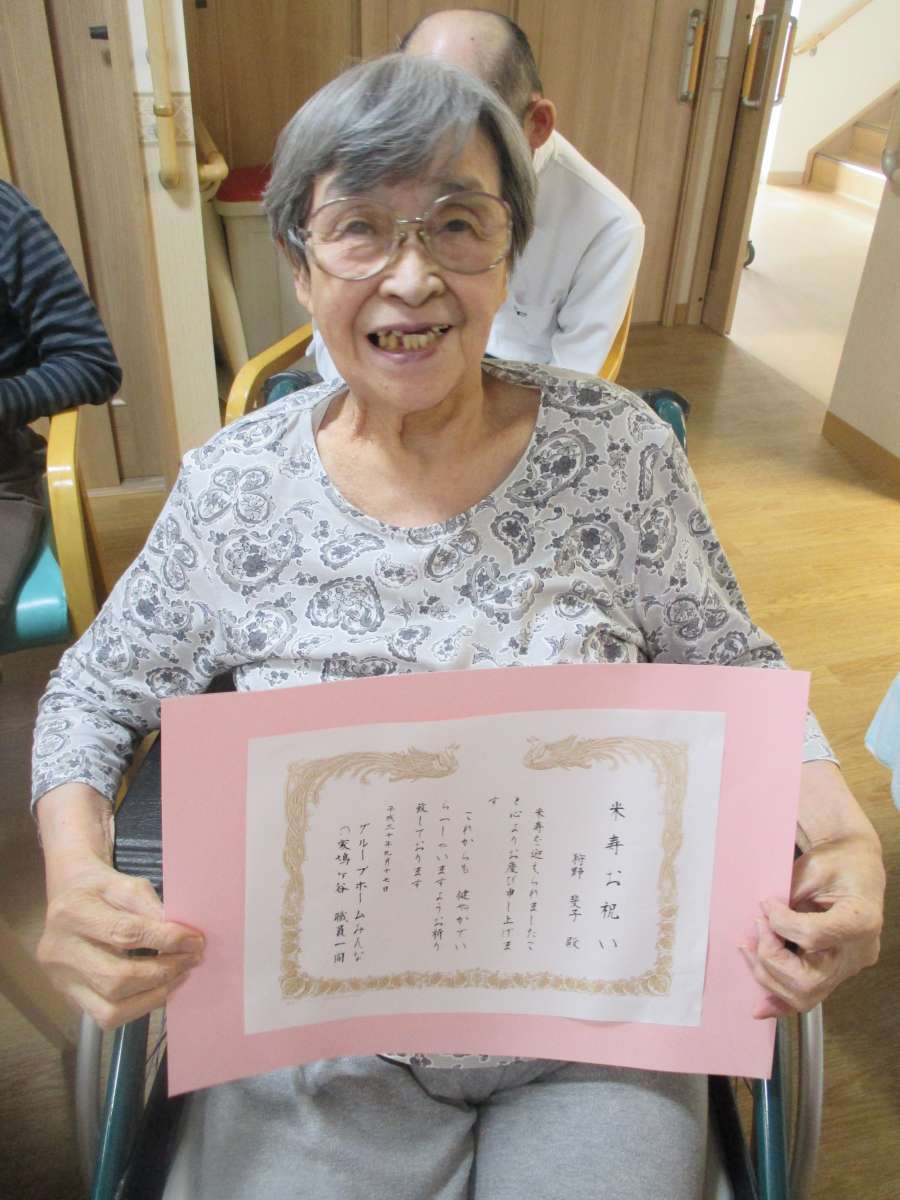 米寿お祝い
狩野 斐子 殿
米寿を迎えられましたこ
と心よりお慶び申し上げま
す
これからも 健やかでい
らっしゃいますようお祈り
致しております
平成三十年九月十七日
グループホームみんな
の家鳩ヶ谷 職員一同